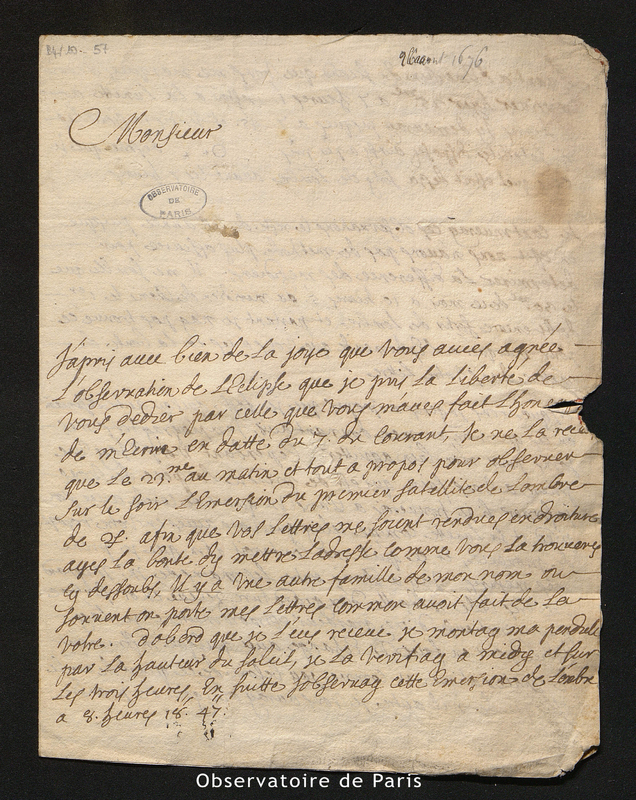 B4/10 - 57
aout 1676
Monsieur
OBSERVATOIRE
DE
PARIS
J'apris avec bien de la joye que vous aviés agréé
L'observation de L'Eclipse que je pris la liberté de
vous dedier par celle que vous m'aves fait L'hone
de m'Ecrire en datte du 7. du Courant, Je ne la receu
que Le 23me au matin et tout a propos pour observer
sur le soir L'Emersion du premier satellite de Lombre
de ♃. afin que vos lettres me soient rendues en droiture
ayes la bonté d'y mettre L'adresse comme vous la trouveres
cy dessoubs, Il y a une autre famille de mon nom ou
souvent on porte mes lettres comme on avoit fait de la
votre. D'abord que je L'eus receue je montay ma pendule
par la hauteur du soleil, je la verifiay a midy et sur
Les trois heures, En suitte J'observay cette Emersion de Lombre
a 8. heures 18. 47.
Observatoire de Paris